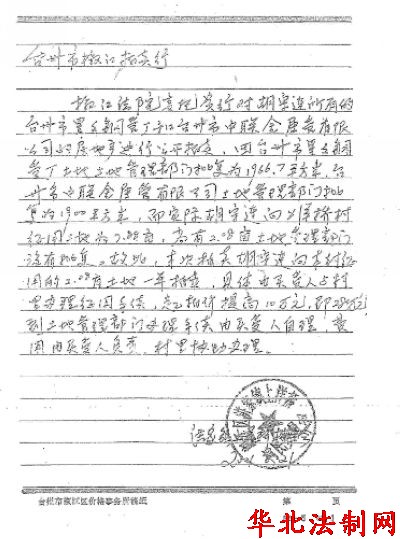 台州市椒江拍卖行
椒江法院委托贵行对胡宝连所有的
台州市置信铜管厂和台州市中联金属管有限
公司的房地产进行公开拍卖，因台州市置信铜
管厂土地土地管理部门批复为1966.7平方米，台
州市中联金属管有限公司土地管理部门批
复为1900平方米，而实际胡宝连向上洋桥村
征用土地为7.88亩，尚有2.08亩土地管理部门
没有批复。故此，本次拍卖胡宝连向本村征
用的2.08亩土地一并拍卖，具体由买受人与村
里办理征用手续，总拍价提高10万元，即285万元
到土地管理部门办理手续由买受人自理，费
用由买受人负责，村里协助办理。
台州市椒江区价格事务所稿纸 第 页
华北法制网